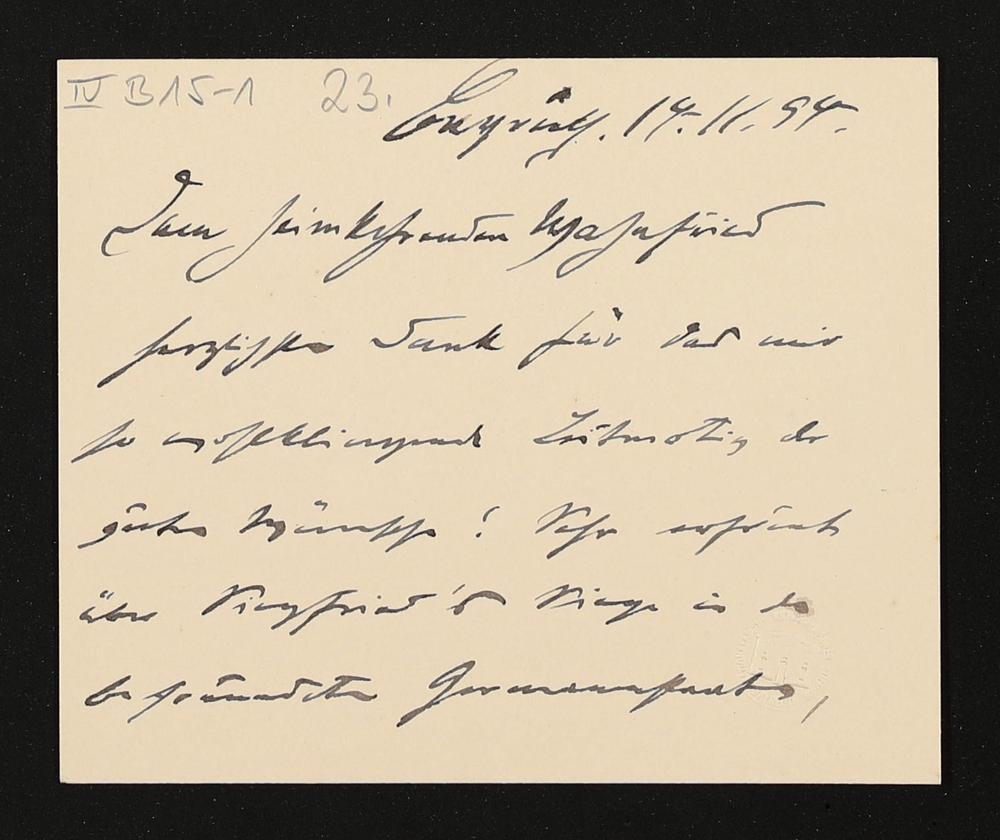 IV B 15-1 23.
Bayreuth. 14. 11. 94.
Dem heimkehrenden Wahnfried
herzlichsten Dank für das mir
so wohlklingende Leitmotiv der
guten Wünsche! Sehr erfreut
über Siegfried's Siege in der
befreundeten Germanenstadt,